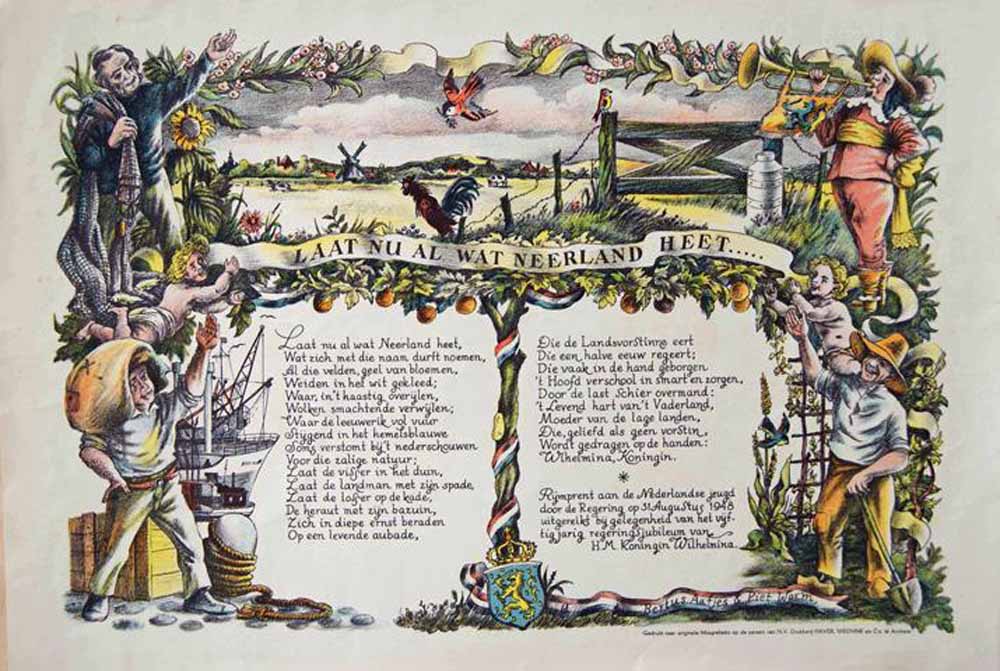 LAAT NU AL WAT NEERLAND HEET.....
Laat nu al wat Neerland heet,
Wat zich met die naam durft noemen,
Al die velden, geel van bloemen,
Weiden in het wit gekleed;
Waar, in't haastig overijlen,
Wolken smachtende verwijlen;
Waar de leeuwerik vol vuur
Stijgend in het hemelsblauwe
Soms verstomt bij 't nederschouwen
Voor die zalige natuur;
Laat de visser in het duin,
Laat de landman met zijn spade,
Laat de losser op de kade,
De heraut met zijn bazuin,
Zich in diepe ernst beraden
Op een levende aubade,
Die de Landsvorstinne eert
Die een halve eeuw regeert;
Die vaak in de hand geborgen
't Hoofd verschool in smart en zorgen,
Door de last schier overmand:
't Levend hart van 't Vaderland,
Moeder van de lage landen,
Die, geliefd als geen vorstin,
Wordt gedragen op de handen:
Wilhelmina, Koningin.
*
Rijmprent aan de Nederlandse jeugd
door de Regering op 31 Augustus 1948
uitgereikt bij gelegenheid van het vijf-
tigjarig regeringsjubileum van
H.M. Koningin Wilhelmina.
Bertus Aafjes & Piet Worm
Gedrukt naar originele op de persen van N.V. Drukkerij en Co. te Arnhem